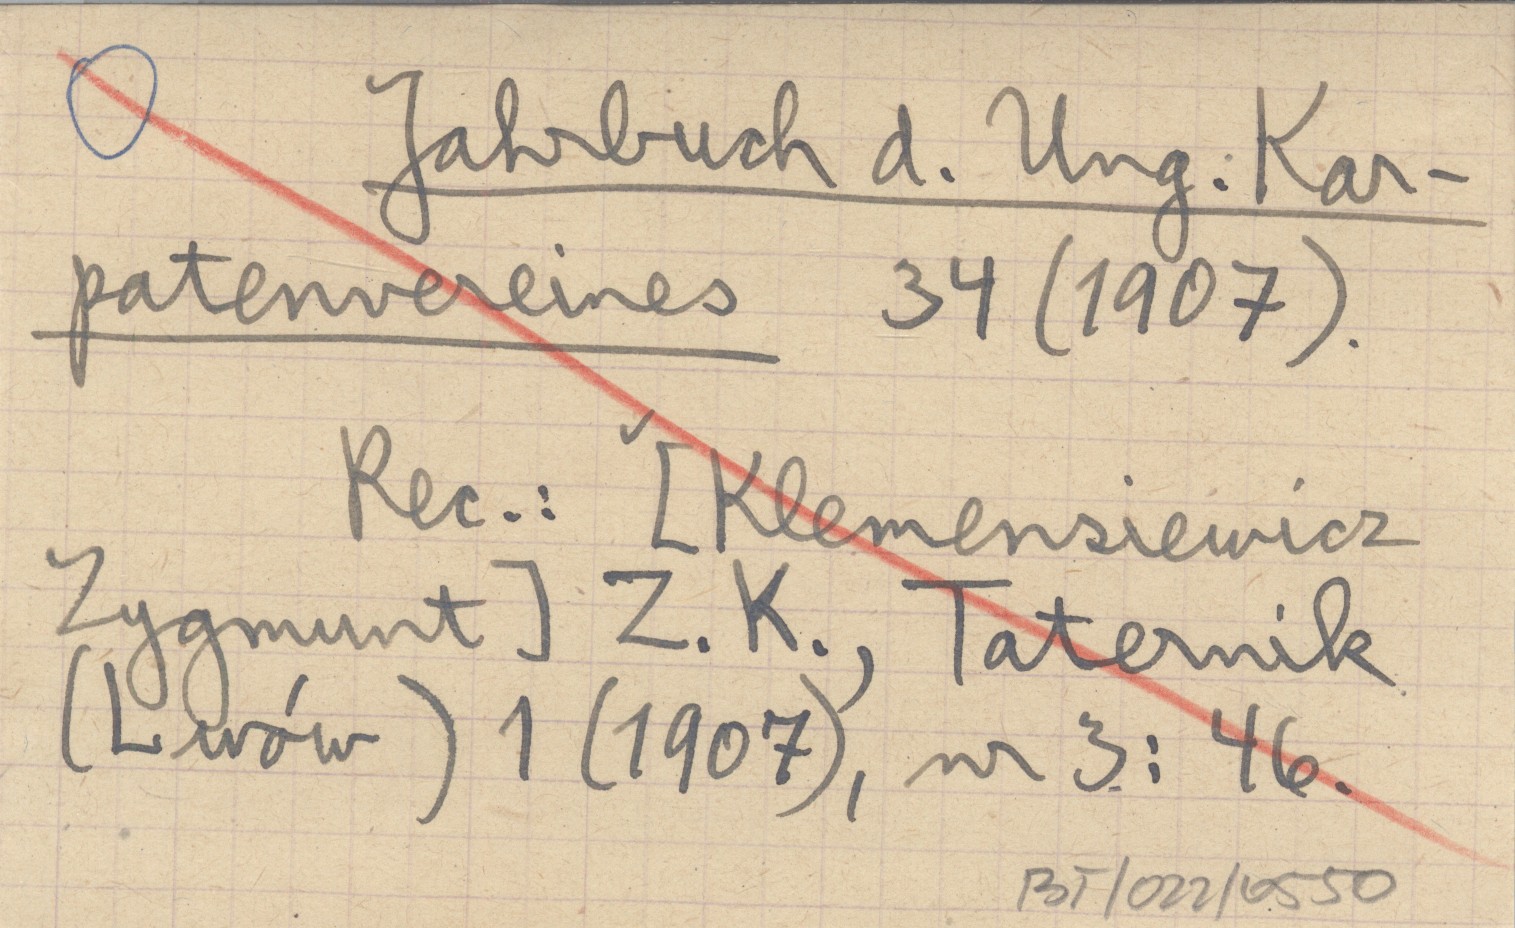 Jahrbuch d. Ung. Kar-
patenvereines 34 (1907).
Rec.: [Klemensiewicz
Zygmunt] Z. K., Taternik
(Lwów) 1 (1907), nr 3: 46.
BT/022/0550